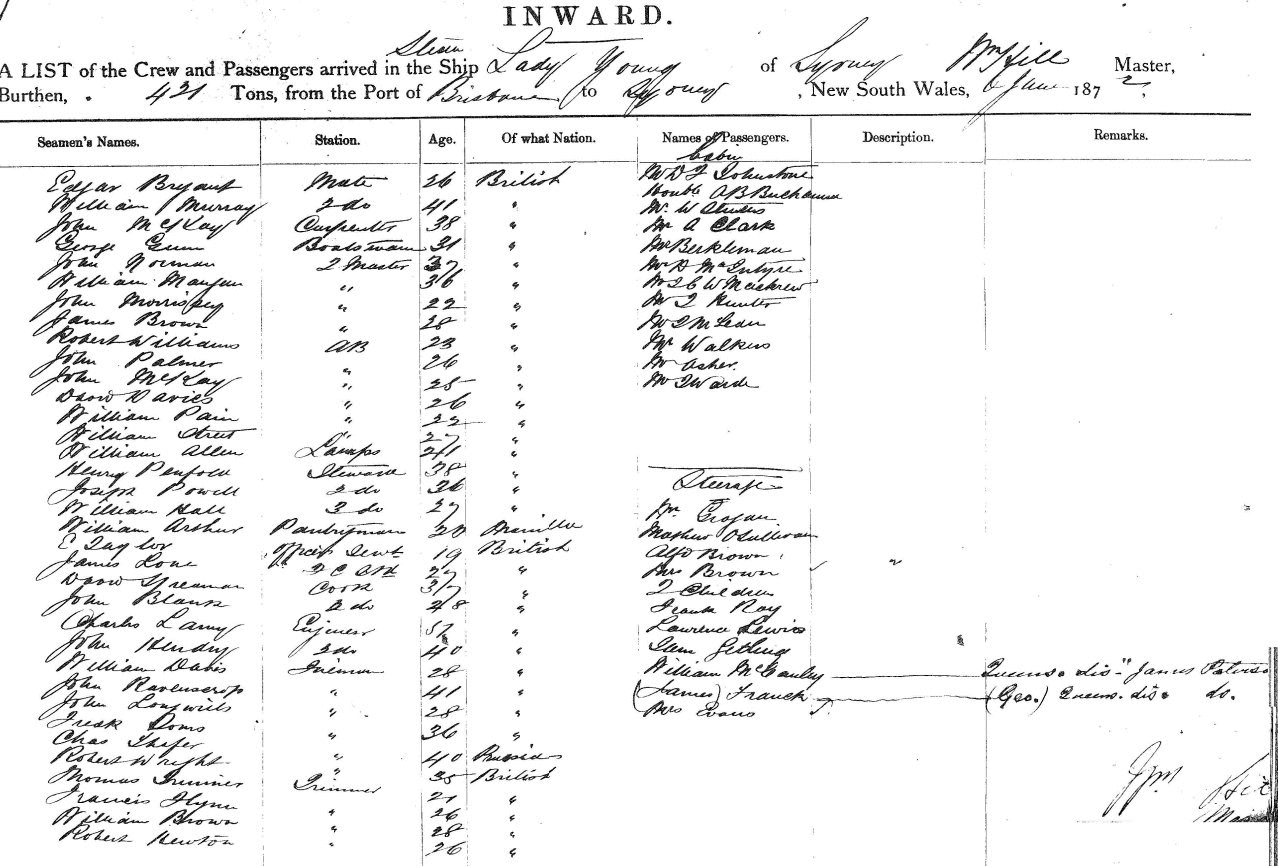 INWARD.
Steam
A LIST of the Crew and Passengers arrived in the Ship Lady Young of Sydney Wm Hill Master,
Burthen, 421 Tons, from the Port of Brisbane to Sydney, New South Wales, 6 June 1872
Seamen's Names. Station. Age. Of what Nation. Names of Passengers. Description. Remarks.
Cabin
Edgar Bryant Mate 26 British Mr D Johnstone
William Murray 2 do 41 " Honble A B Buchanan
John McKay Carpenter 38 " Mr W
George Gunn Boatswain 31 " Mr A Clark
John Norman 2 Master 37 " Mr Berkleman
William " 36 " Mr D McIntyre
John Morrissey " 22 " Mr
James Brown " 28 " Mr J Hunter
Robert Williams AB 23 " Mr J McLean
John Palmer " 26 " Mr Walkers
John McKay " 25 " Mr Asher
David Davies " 26 " Mr J Warde
William Pain " 22 "
William Street " 27 "
William Allen Lamps 21 "
Henry Penfold Steward 38 "
Joseph Powell 2 do 36 " Steerage
William Hall 3 do 27 "
William Arthur Pantryman 20 Manilla Wm Grogan
E Taylor Officers Sevt 19 British Mathew OSullivan
James Lone 27 " Alfd Brown
David Cook 37 " Mrs Brown "
John Blank 2 do 48 " 2 Children
Charles Lamy Engineer 51 " Frank Ray
John Hendry 2 do 40 " Lawrence Lewis
William Davis Fireman 28 "
John Ravenscrop " 41 " William McCauley Queens. dis" James Paterso
John " 28 " (James) Franck (Geo.) Queens. dis. do.
Fredk " 36 " Mrs Evans
Chas " 40 Russian
Robert Wright " 35 British
Thomas Trimmer 21 "
Francis Flynn " 26 "
William Brown " 28 "
Robert Hewton " 26 "